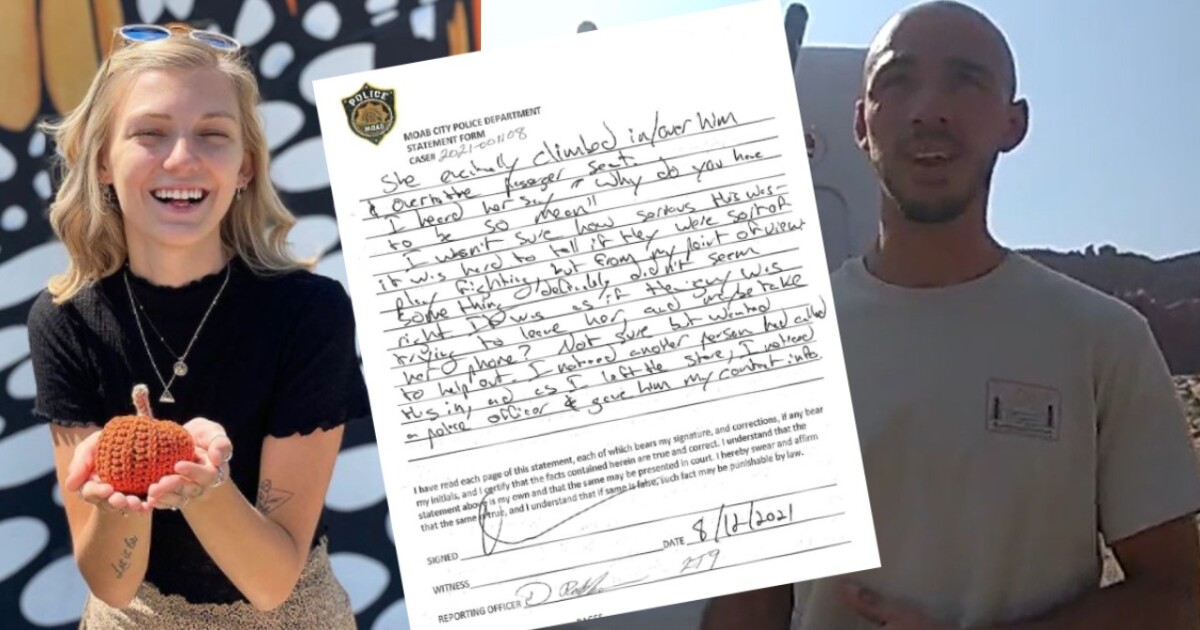 POLICE
MOAB
MOAB CITY POLICE DEPARTMENT
STATEMENT FORM
CASE# 2021-001108
She eventually climbed in/over him
& over to the passenger seat.
I heard her say "Why do you have
to be so mean"
I wasn't sure how serious this was -
it was hard to tell if they were sort of
play fighting, but from my point of view
something definitely didn't seem
right. It was as if the guy was
trying to leave her, and maybe take
her phone? Not sure but wanted
to help out. I noticed another person had called
this in, and as I left the store, I noticed
a police officer & gave him my contact info.
I have read each page of this statement, each of which bears my signature, and corrections, if any bear
my initials, and I certify that the facts contained herein are true and correct. I understand that the
statement above is my own and that the same may be presented in court. I hereby swear and affirm
that the same is true, and I understand that if same is false, such fact may be punishable by law.
SIGNED
DATE 8/12/2021
WITNESS
REPORTING OFFICER
PAGES
let it be